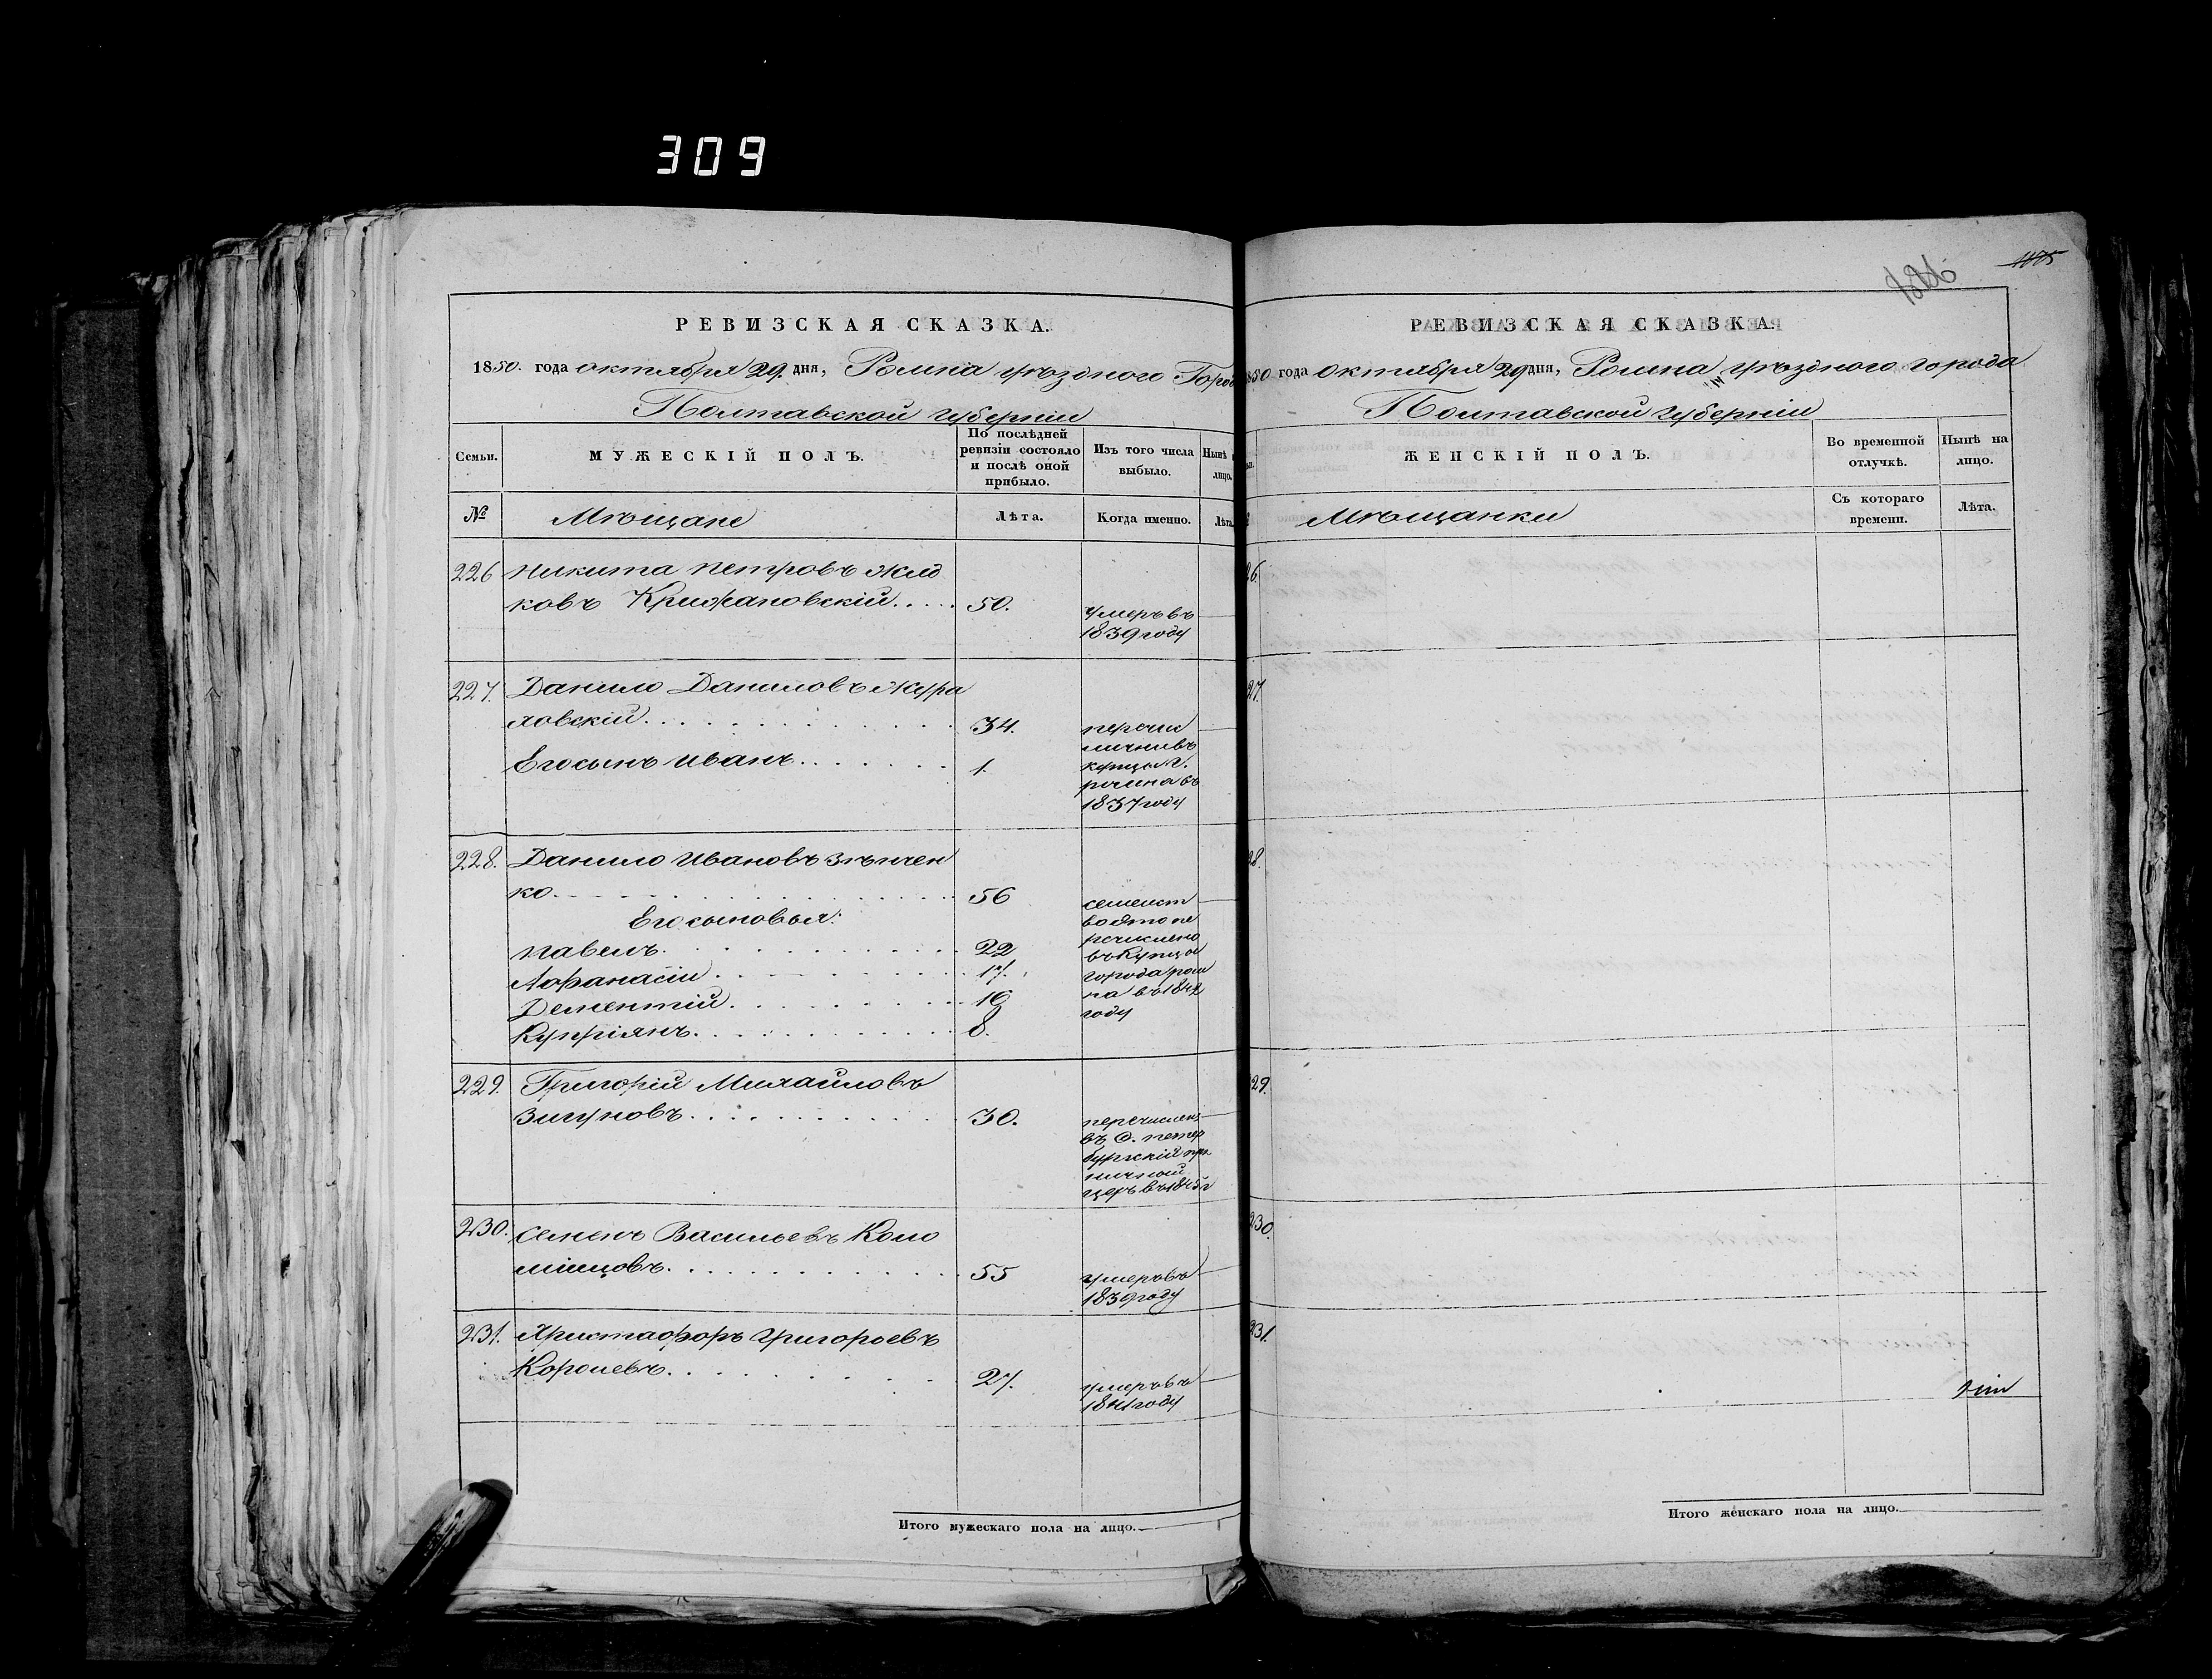 309
РЕВИЗСКАЯ СКАЗКА.
1850. года октября 29. дня, Ромна уѣзднаго Город
Полтавской губерніи
Семьи.
МУЖЕСКІЙ ПОЛЪ.
По послѣдней ревизіи состояло и послѣ оной прибыло.
Изъ того числа выбыло.
Нынѣ лицо.
№
Мѣщане
Лѣта.
Когда именно.
Лѣта.
226 Никита Петровъ
ковъ Крижановскій..... 50.
умеръ въ
1839 году
227. Данило Даниловъ Жура
ховскій. 34.
перечис
Его сынъ Иванъ. 1.
купцы г.
ромна въ
1837 году
228. Данило Ивановъ Зѣнчен
ко. 56
семейст
Его сыновья:
во это пе
Павелъ. 22
речислено
въ купцы
Афанасій. 17.
города ром
Дементій. 16
на въ 1842
году
Купріянъ. 8.
229. Григорій Михайловъ
Зигуновъ. 30.
перечисленъ
въ С. петер
бургскій
въ 1845 г
230. Семенъ Васильевъ Коло
мійцовъ. 55
умеръ въ
1839 году
231. Христафоръ Григорьевъ
Королевъ. 27.
умеръ въ
1841 году
Итого мужескаго пола на лицо.
1175
РЕВИЗСКАЯ СКАЗКА.
850 года Октября 29 дня, Ромна уѣзднаго города
Полтавской губерніи
ЖЕНСКІЙ ПОЛЪ.
Во временной отлучкѣ.
Нынѣ на лицо.
Мѣщанки
Съ котораго времени.
Лѣта.
26.
27.
28.
29.
230
231.
Итого женскаго пола на лицо.